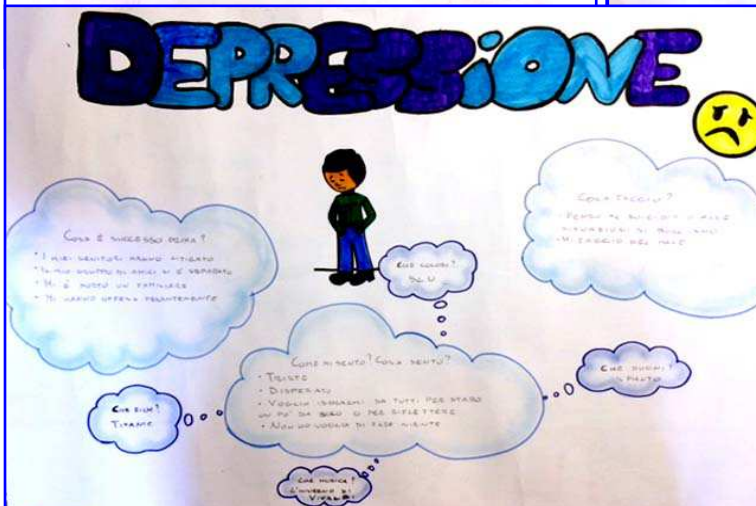 DEPRESSiONE
COSA È SUCCESSO PRIMA?
• I MIEI GENITORI HANNO LITIGATO
• IL MIO GRUPPO DI AMICI SI È SEPARATO
• MI È MORTO UN FAMILIARE
• MI HANNO OFFESA PESANTEMENTE
COSA FACCIO?
PENSO AL SUICIDIO O ALLE
SITUAZIONI DI BULLISMO
MI FACCIO DEL MALE
CHE COLORI?
BLU
COME MI SENTO? COSA SENTO?
• TRISTE
• DISPERATO
• VOGLIO ISOLARMI DA TUTTI PER STARE
UN PO' DA SOLO O PER RIFLETTERE
• NON HO VOGLIA DI FARE NIENTE
CHE SUONI?
PIANTO
CHE FILM?
TITANIC
CHE MUSICA?
L'INVERNO DI
VIVALDI